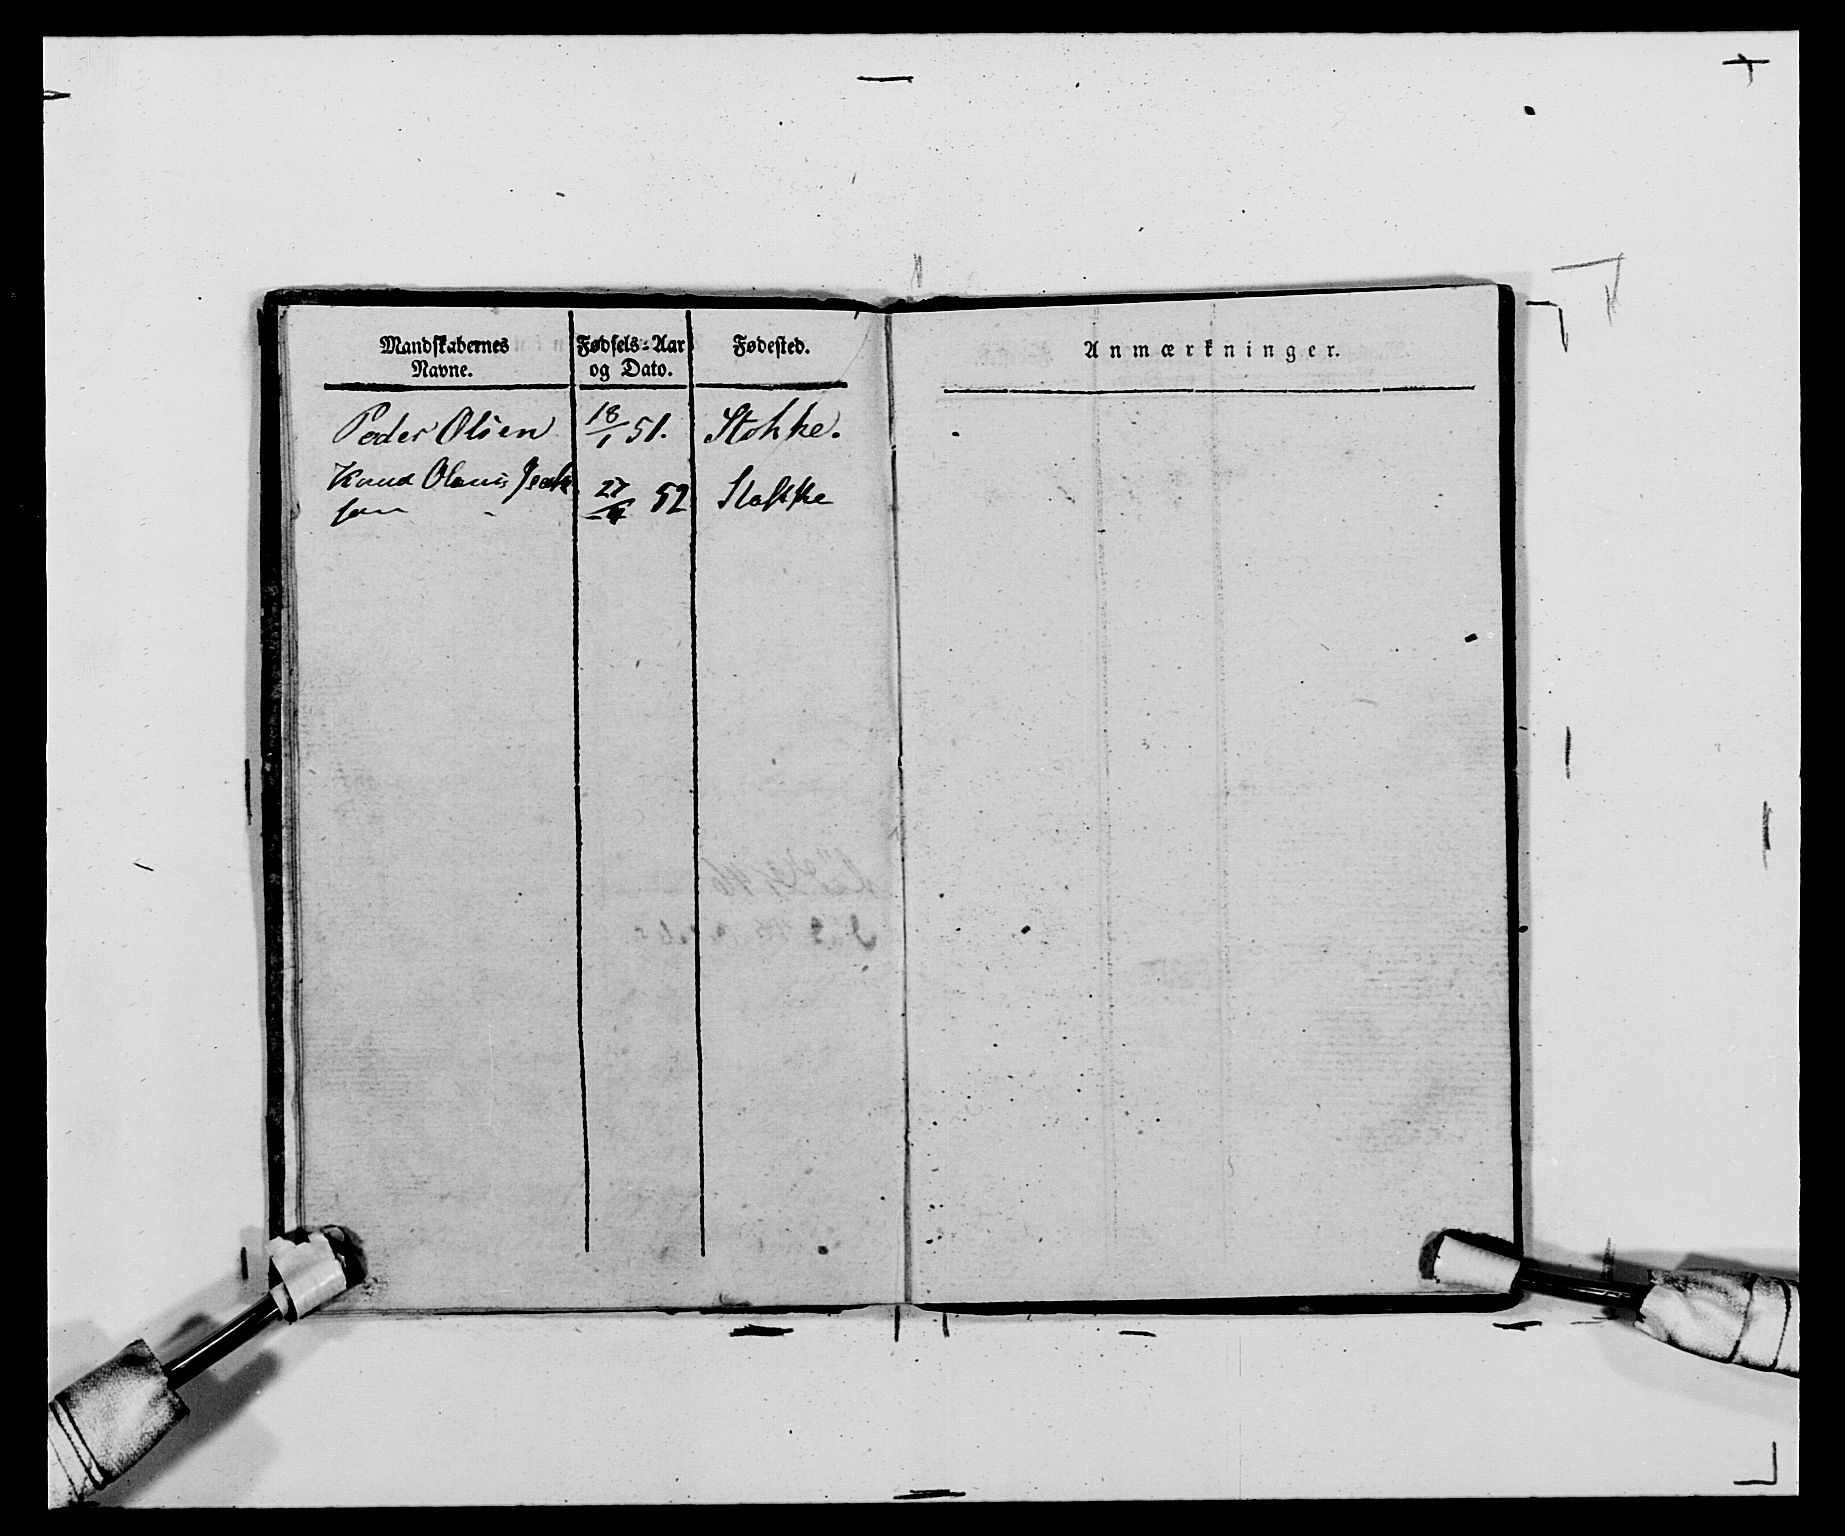 Mandskabernes Navne. Fødsels-Aar og Dato. Fødested. Anmærkninger.
Peder Olsen 18/1 51. Stokke.
Knud Olaus Isak
sen 27/4 52 Stokke